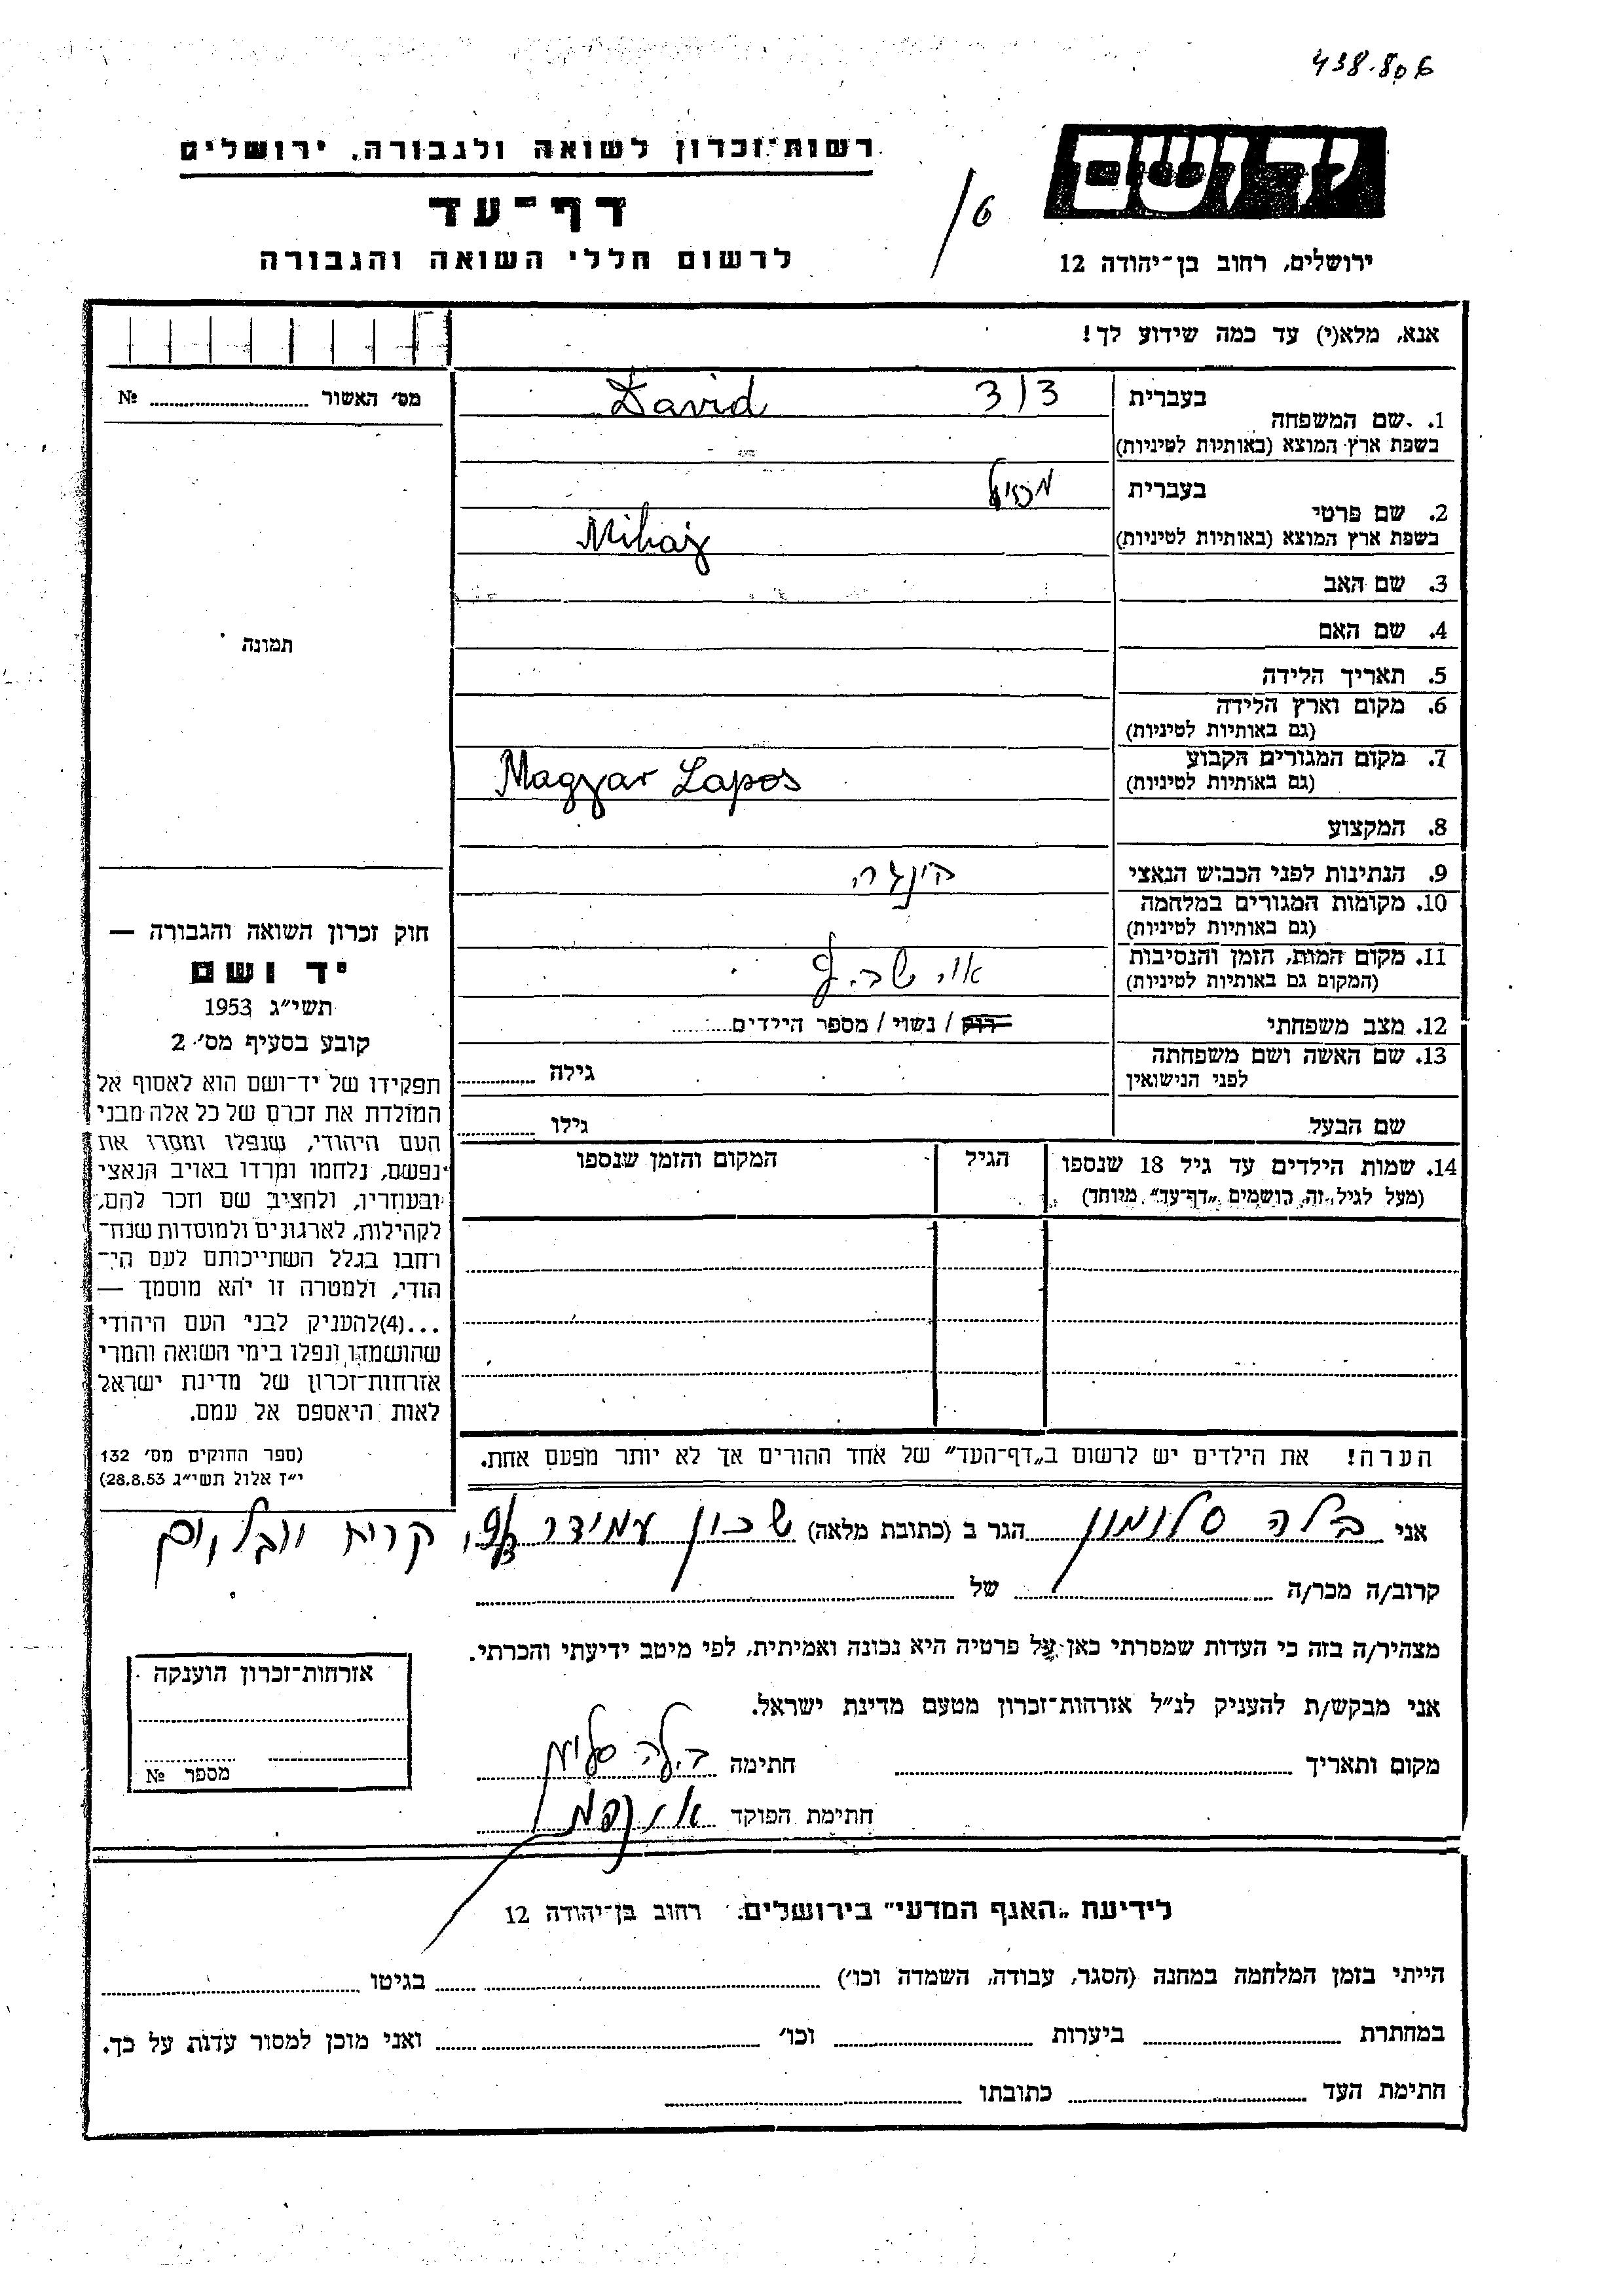 438.806
רשות־זכרון לשואה ולגבורה, ירושלים
דף־עד
לרשום חללי השואה והגבורה
יד ושם
ירושלים, רחוב בן־יהודה 12
6
אנא, מלא(י) עד כמה שידוע לך!
מס׳ האשור № ........
1. שם המשפחה
בעברית דוד
בשפת ארץ המוצא (באותיות לטיניות) David
2. שם פרטי
בעברית
בשפת ארץ המוצא (באותיות לטיניות) Mihaj
3. שם האב
4. שם האם
5. תאריך הלידה
6. מקום וארץ הלידה
(גם באותיות לטיניות)
7. מקום המגורים הקבוע
(גם באותיות לטיניות) Magyar Lapos
8. המקצוע
9. הנתינות לפני הכבוש הנאצי
10. מקומות המגורים במלחמה
(גם באותיות לטיניות)
11. מקום המות, הזמן והנסיבות
(המקום גם באותיות לטיניות)
12. מצב משפחתי רוק / נשוי / מספר הילדים........
13. שם האשה ושם משפחתה
לפני הנישואין
גילה ........
שם הבעל
גילו ........
14. שמות הילדים עד גיל 18 שנספו
(מעל לגיל זה רושמים „דף־עד״ מיוחד)
הגיל
המקום והזמן שנספו
תמונה
חוק זכרון השואה והגבורה —
יד ושם
תשי״ג 1953
קובע בסעיף מס׳ 2
תפקידו של יד־ושם הוא לאסוף אל
המולדת את זכרם של כל אלה מבני
העם היהודי, שנפלו ומסרו את
נפשם, נלחמו ומרדו באויב הנאצי
ובעוזריו, ולהציב שם וזכר להם,
לקהילות, לארגונים ולמוסדות שנח־
רחבו בגלל השתייכותם לעם הי־
הודי, ולמטרה זו יהא מוסמך —
...(4)להעניק לבני העם היהודי
שהושמדו ונפלו בימי השואה והמרי
אזרחות־זכרון של מדינת ישראל
לאות היאספם אל עמם.
(ספר החוקים מס׳ 132
י״ז אלול תשי״ג 28.8.53)
הערה! את הילדים יש לרשום ב„דף־העד״ של אחד ההורים אך לא יותר מפעם אחת.
אני בלה סלומון הגר ב (כתובת מלאה) שכון עמידר קרית
קרוב/ה מכר/ה ........ של ........
מצהיר/ה בזה כי העדות שמסרתי כאן על פרטיה היא נכונה ואמיתית, לפי מיטב ידיעתי והכרתי.
אני מבקש/ת להעניק לנ״ל אזרחות־זכרון מטעם מדינת ישראל.
מקום ותאריך ........ חתימה בלה
חתימת הפוקד
אזרחות־זכרון הוענקה
מספר №
לידיעת „האגף המדעי״ בירושלים. רחוב בן־יהודה 12
הייתי בזמן המלחמה במחנה (הסגר, עבודה, השמדה וכו׳) ........ בגיטו ........
במחתרת ........ ביערות ........ וכו׳ ........ ואני מוכן למסור עדות על כך.
חתימת העד ........ כתובתו ........